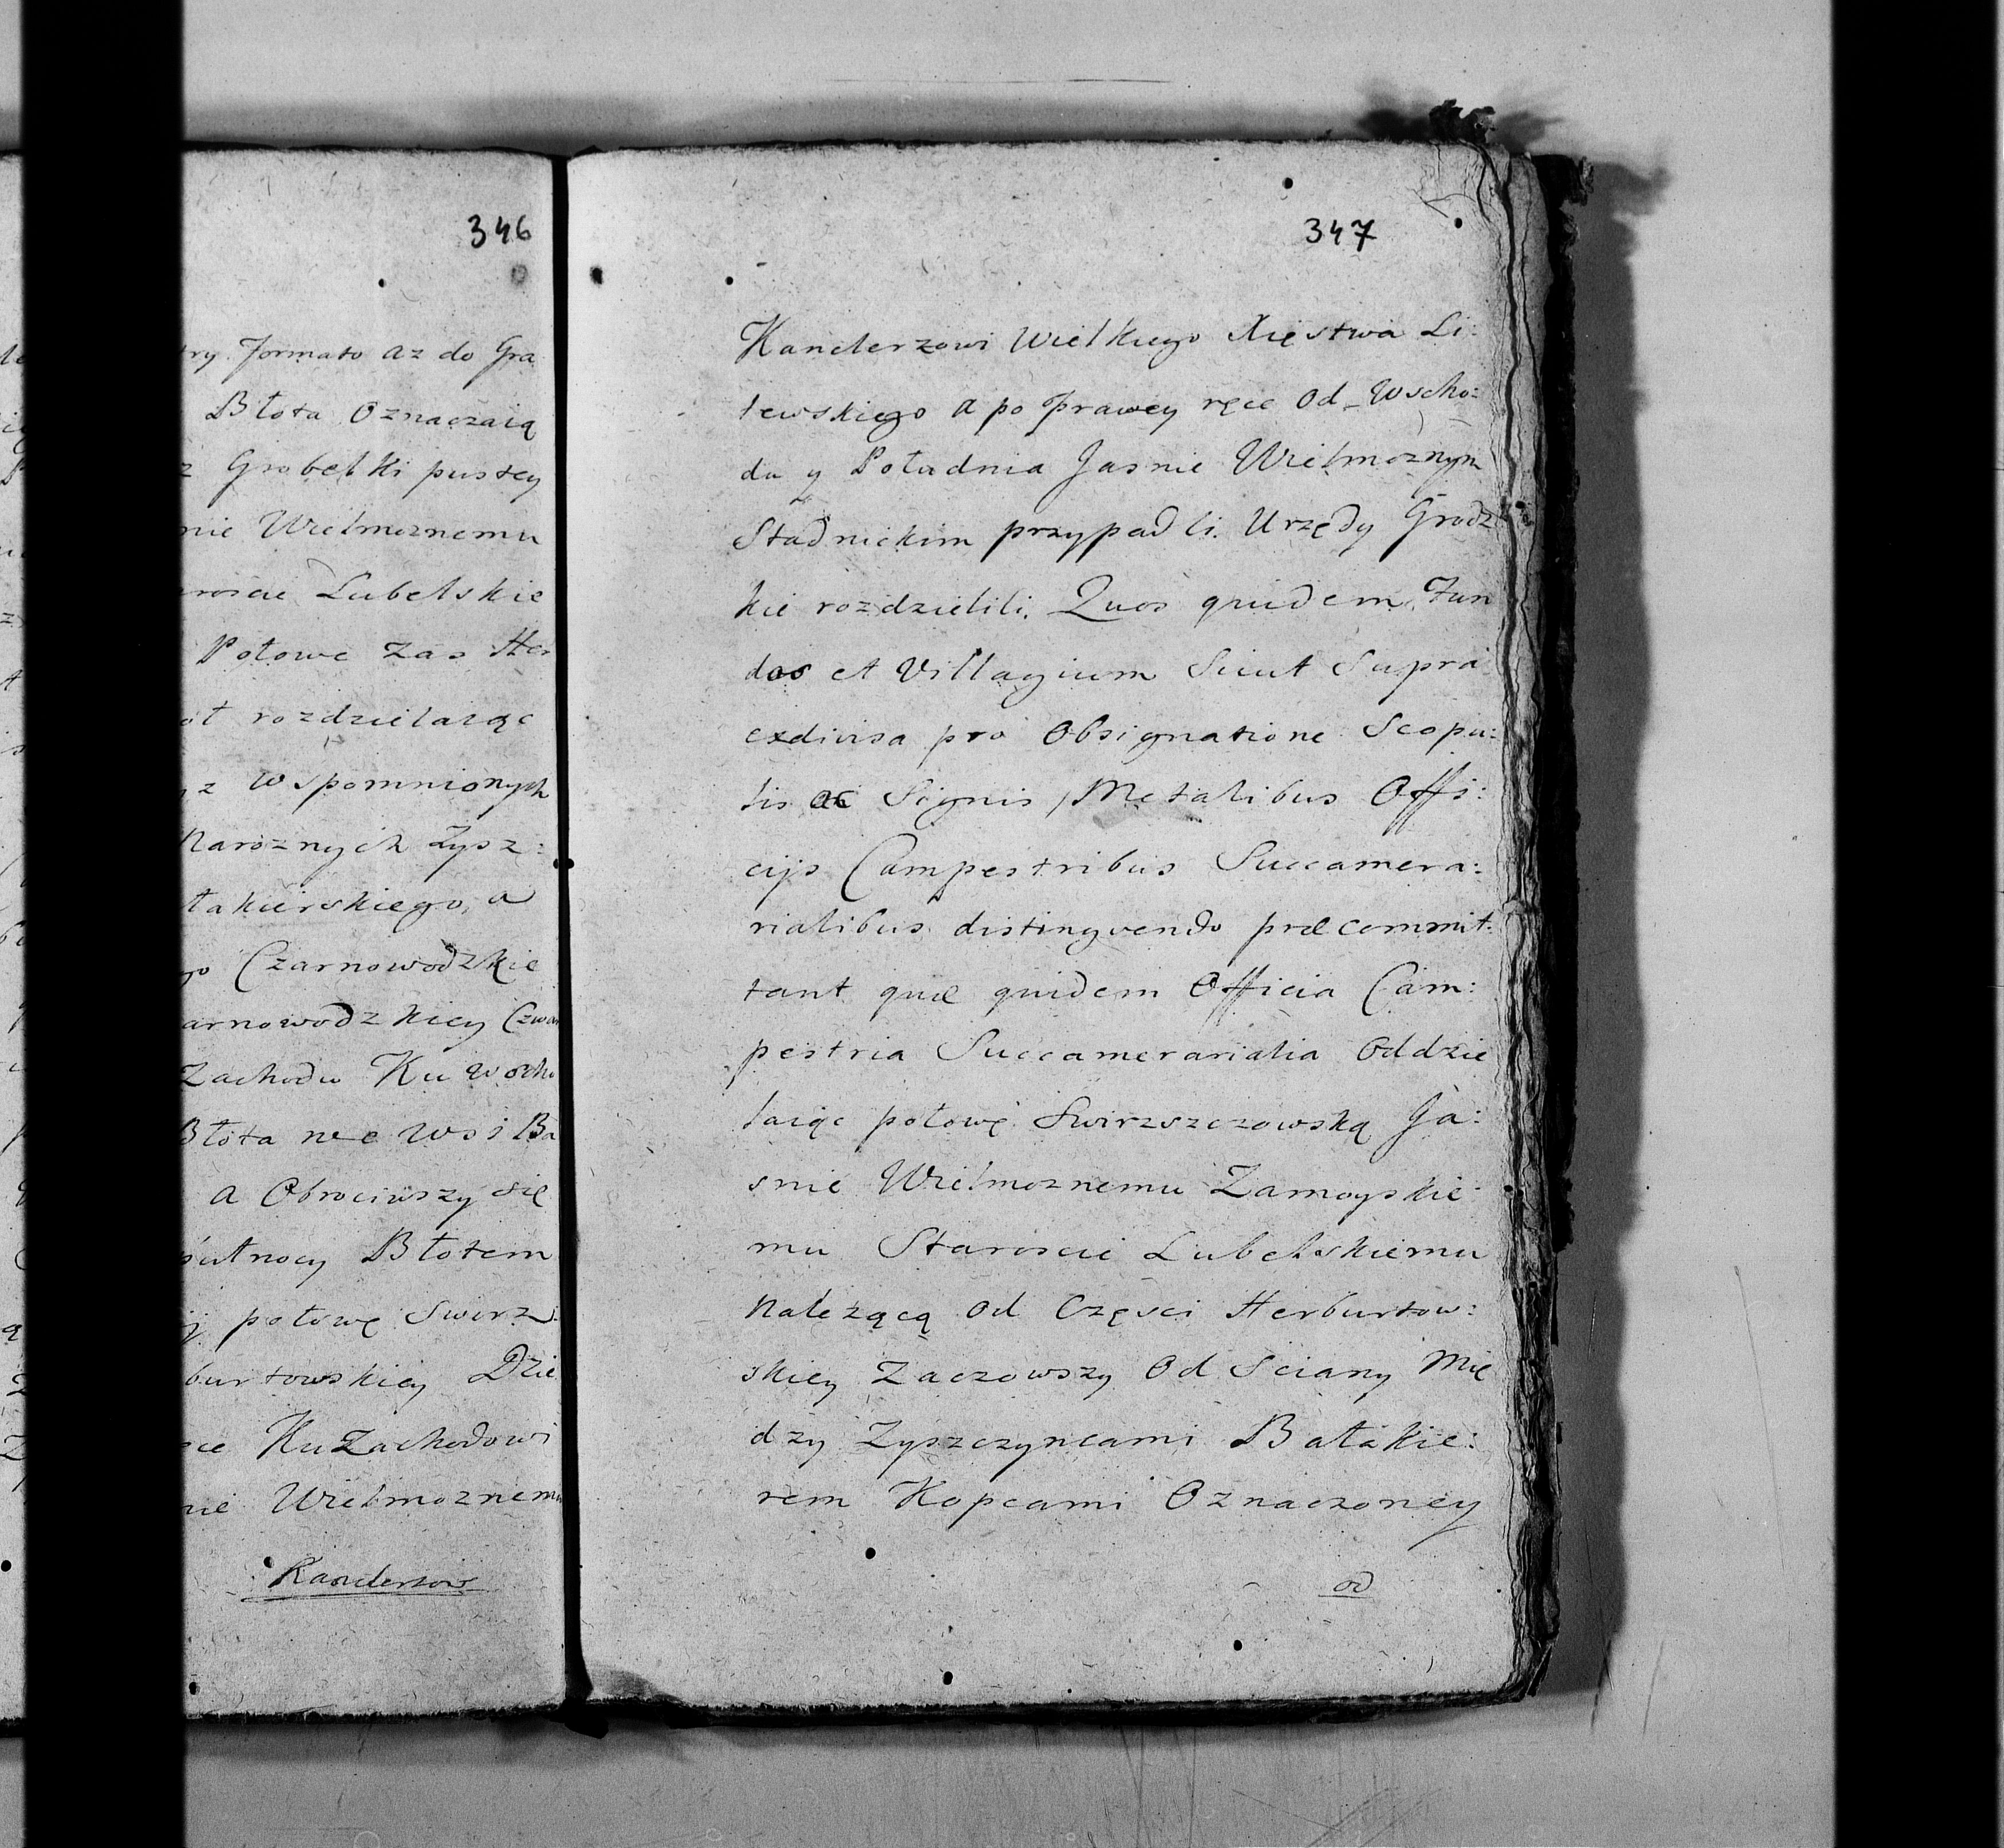 346
ry formato az do Gra
Błota Oznaczaią
z Grobelki pustey
nie Wielmoznemu
roscie Lubelskie
Połowe zas Her
ot rozdzielaiąc
z wspomnionych
Naroznych Zysz:
łakierskiego, a
go Czarnowodzkie
arnowodzkiey Czwar
Zachodu Ku Wscho
Błota we Wsi Ba
a Obrociwszy się
pułnocy Błotem
połowę Swirz
burtowskiey Dzie
ce Ku Zachodowi
nie Wielmoznemu
Kanclerzow
347
Kanclerzowi Wielkiego Xięstwa Li:
tewskiego a po prawey ręce od Wscho:
du y Południa Jasnie Wielmoznym
Stadnickim przypadli. Urzędy Grodz
kie rozdzielili. Quos quidem Fun
dos et Villagium Sicut Supra
exdivisa pro Obsignatione Scopu:
lis ac Signis Metalibus Offi:
cijs Campestribus Succamera:
rialibus distingvendo præcommit:
tant quæ quidem Officia Cam:
pestria Succamerarialia Oddzie
laiąc połowę Swirzszczowską Ja:
snie Wielmoznemu Zamoyskie
mu Staroscie Lubelskiemu
Należącą od Części Herburtow:
skiey Zaczowszy Od Sciany Mię
dzy Zyszczyncami Bałakie:
rem Kopcami Oznaczoney
od